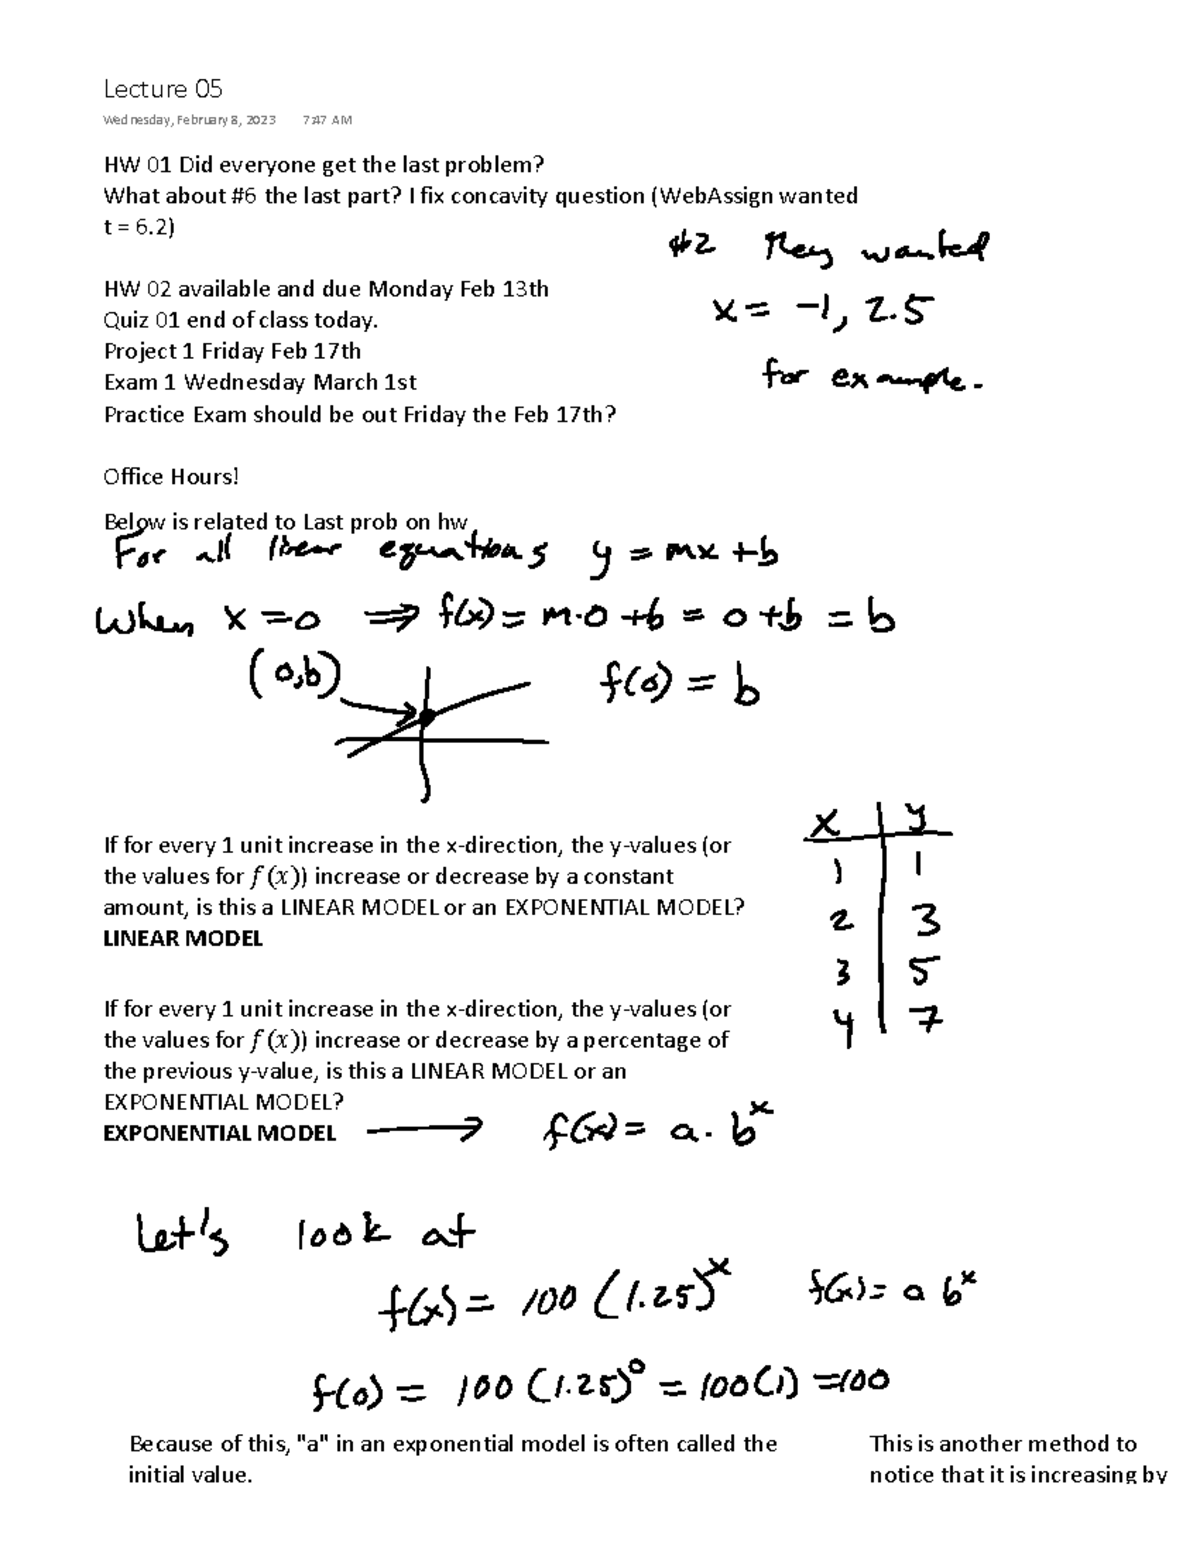 Lecture 05
Wednesday, February 8, 2023 7:47 AM
HW 01 Did everyone get the last problem?
What about #6 the last part? I fix concavity question (WebAssign wanted
t = 6.2)
#2 They wanted
x = -1, 2.5
for example.
HW 02 available and due Monday Feb 13th
Quiz 01 end of class today.
Project 1 Friday Feb 17th
Exam 1 Wednesday March 1st
Practice Exam should be out Friday the Feb 17th?
Office Hours!
Below is related to Last prob on hw
For all linear equations y = mx + b
When x = 0 ⇒ f(x) = m·0 + b = 0 + b = b
(0,b) f(0) = b
If for every 1 unit increase in the x-direction, the y-values (or
the values for f(x)) increase or decrease by a constant
amount, is this a LINEAR MODEL or an EXPONENTIAL MODEL?
LINEAR MODEL
x y
1 1
2 3
3 5
4 7
If for every 1 unit increase in the x-direction, the y-values (or
the values for f(x)) increase or decrease by a percentage of
the previous y-value, is this a LINEAR MODEL or an
EXPONENTIAL MODEL?
EXPONENTIAL MODEL → f(x) = a · b^x
Let's look at
f(x) = 100 (1.25)^x f(x) = a b^x
f(0) = 100 (1.25)^0 = 100(1) = 100
Because of this, "a" in an exponential model is often called the
initial value.
This is another method to
notice that it is increasing by